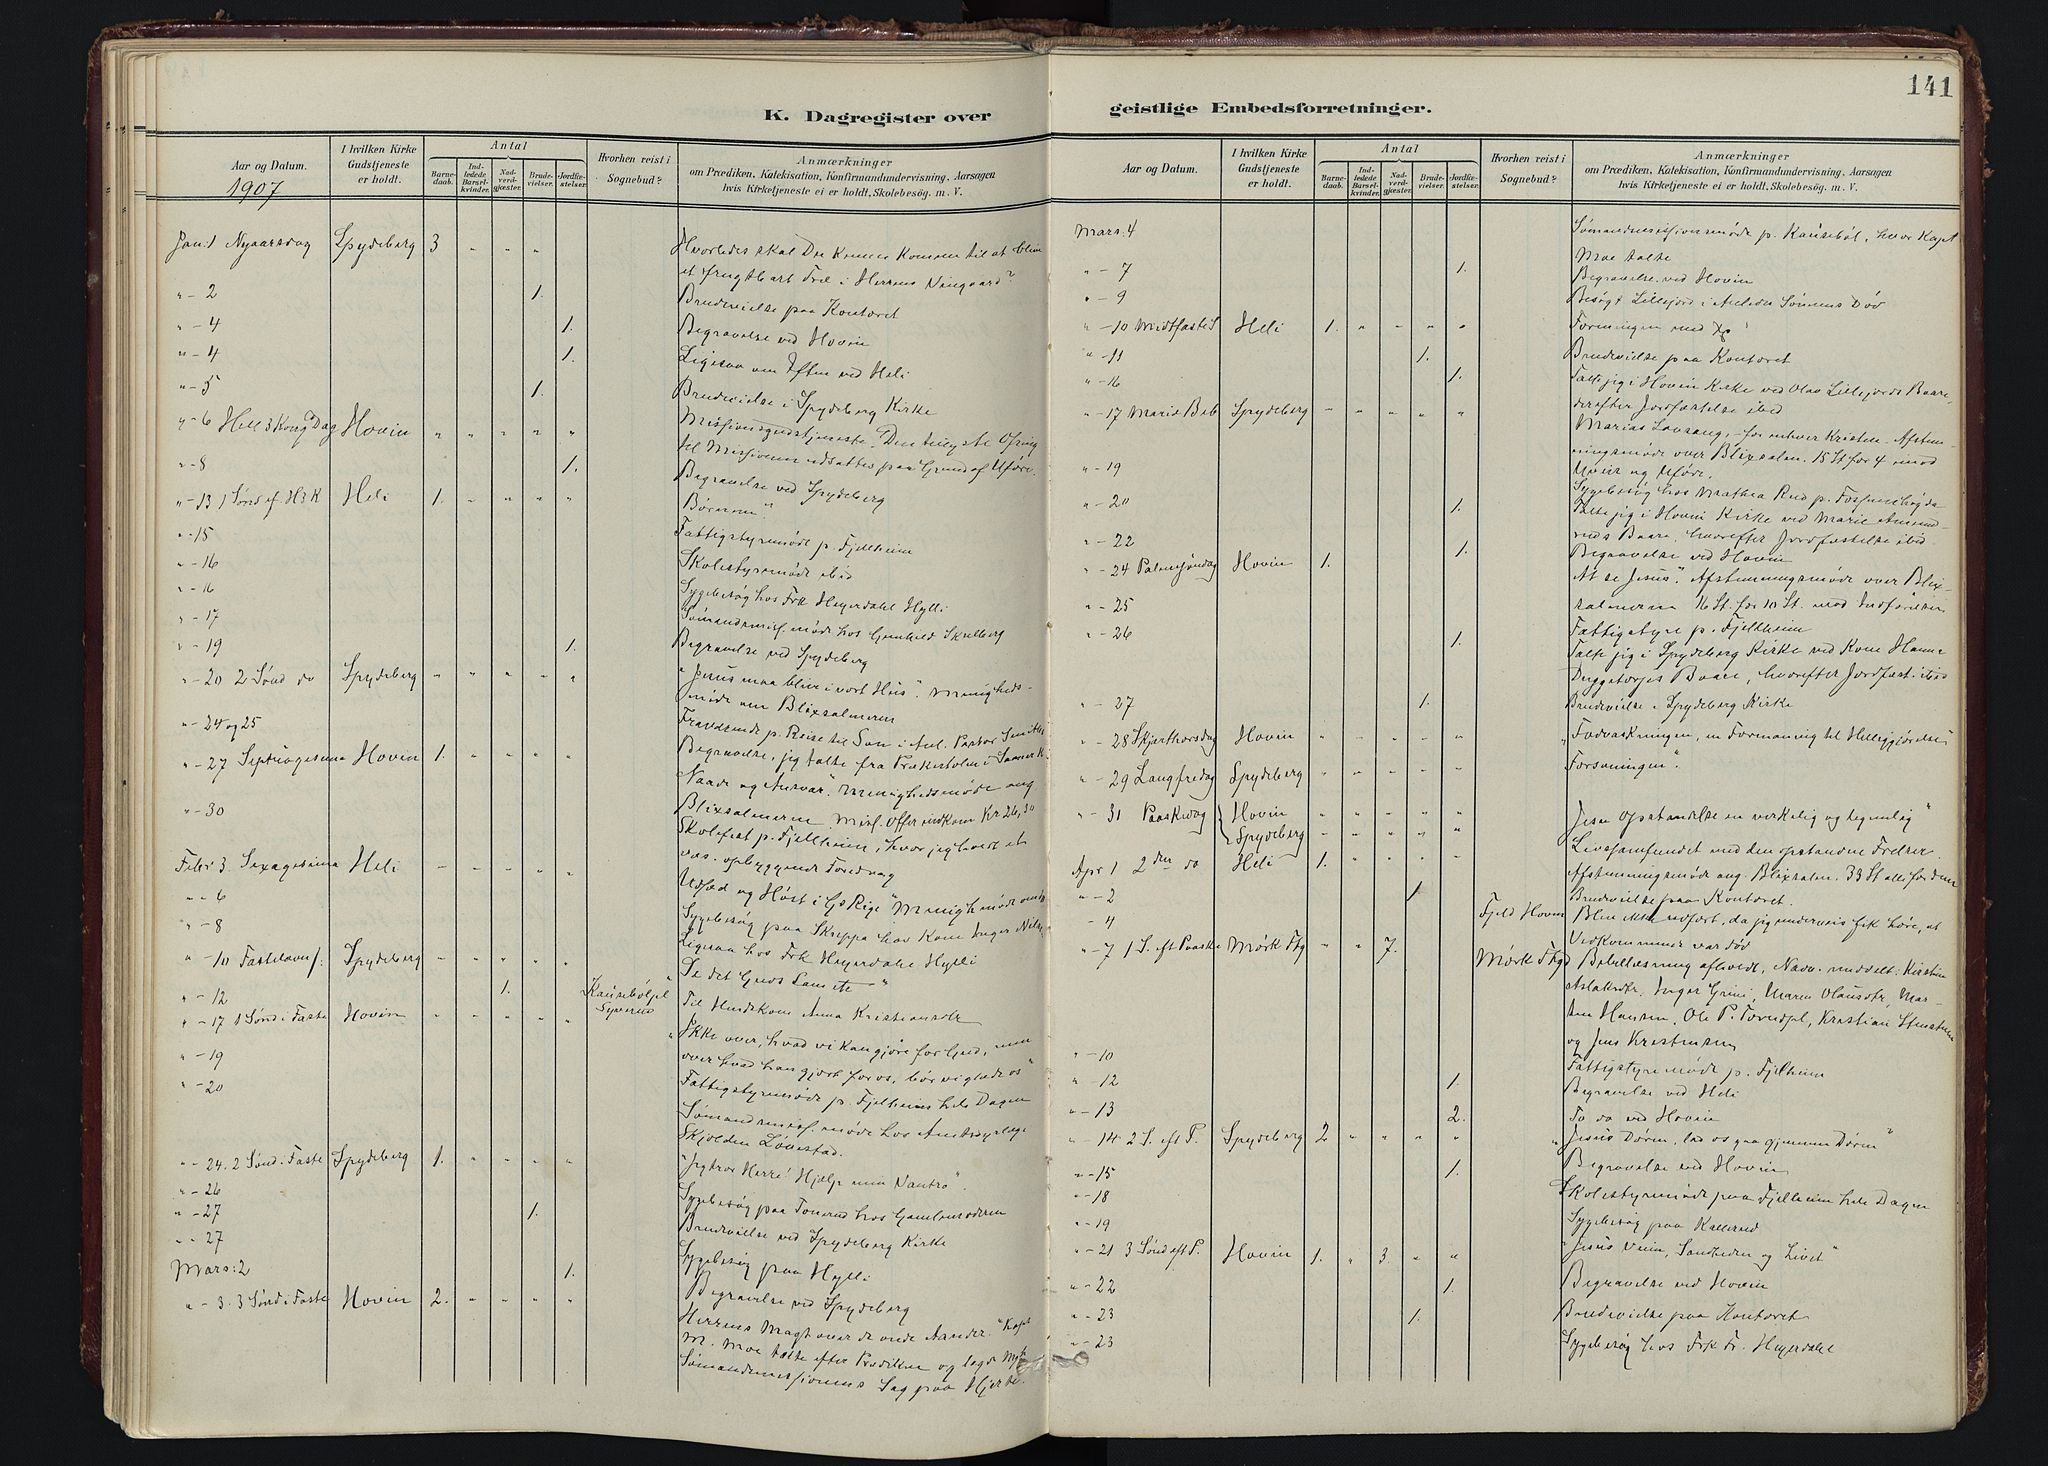 141
K. Dagregister over
geistlige Embedsforretninger.
Aar og Datum.
I hvilken Kirke
Gudstjeneste
er holdt.
Antal
Barne-
daab.
Ind-
ledede
Barsel-
kvinder.
Nad-
verd-
gjæster.
Brude-
vielser.
Jordfæ-
stelser.
Hvorhen reist i
Sognebud?
Anmærkninger
om Prædiken, Katekisation, Konfirmandundervisning, Aarsagen
hvis Kirketjeneste ei er holdt, Skolebesøg. m. V.
1907
Jan: 1 Nyaarsdag Spydeberg 3 " " "
Hvorledes skal Den Kristne komme til at blive
et frugtbart Træ i Herrens Vingaard?
" - 2 1. Brudevielse paa Kontoret
" - 4 1. Begravelse ved Hovin
" - 4 1. ved Heli
" - 5 1. Brudevielse i Spydeberg Kirke
" - 6 Hell 3 Kong Dag Hovin " " " " "
Missionsgudstjeneste.
til Missionen udsattes paa Grund af Uføre.
" - 8 1. Begravelse ved Spydeberg
" - 13 1 Sønd ef H3K Heli 1. " " " "
" - 15 Fattigstyremøde p. Fjellheim
" - 16 Skolestyremøde ibid
" - 16 Sygebesøg hos Frk Heyerdahl Hylli
" - 17 Sømandsmisj. møde hos Gunhild
" - 19 1. Begravelse ved Spydeberg
" - 20 2 Sønd do Spydeberg " " " " "
"Jesus maa blive i vort Hus". Menigheds-
møde om Blixsalmerne
" - 24 og 25 Fraværende p. Reise til Son i Anl. Pastor
Begravelse, jeg talte fra Prækestolen i
" - 27 Septuagesima Hovin 1. " " "
Naade og Ansvar". Menighedsmøde ang
Blixsalmerne. Misj. offer indkom Kr 26,30
" - 30 Skolefest p. Fjellheim, hvor jeg holdt et
væs. opbyggende Foredrag
Febr 3. Sexagesima Heli - " " " "
Udsæd og Høst i Gs Rige" Menigh møde
" - 6 Sygebesøg paa Skreppa hos Kone Inger
" - 8 hos Frk Heyerdahl Hylli
" - 10 Fastelavns. Spydeberg " " " " "
Se det Guds Lam etc"
" - 12 1. Til Anna
" - 17 1 Sønd i Faste Hovin " " " " "
"Ikke over, hvad vi kan gjøre for Gud, men
over hvad han gjort for os, bør vi glæde os"
" - 19 Fattigstyremøde p. Fjellheim hele Dagen
" - 20 Sømandsmisj. møde hos
Skjolden Løvestad.
" - 24. 2 Sønd i Faste Spydeberg 1. " " " "
"Jeg tror Herre! Hjælp min Vantro".
" - 26 Sygebesøg paa
" - 27 1. Brudevielse ved Spydeberg Kirke
" - 27 Sygebesøg paa Hylli
Mars: 2 1. Begravelse ved Spydeberg
" - 3. 3 Sønd i Faste Hovin 2. " " " "
Herrens Magt over de onde Aander." Kapt
M. Moe talte efter Prædiken og lagde
Sømandsmissionens Sag paa Hjerte.
Aar og Datum.
I hvilken Kirke
Gudstjeneste
er holdt.
Antal
Barne-
daab.
Ind-
ledede
Barsel-
kvinder.
Nad-
verd-
gjæster.
Brude-
vielser.
Jordfæ-
stelser.
Hvorhen reist i
Sognebud?
Anmærkninger
om Prædiken, Katekisation, Konfirmandundervisning, Aarsagen
hvis Kirketjeneste ei er holdt, Skolebesøg. m. V.
Mars: 4 Sømandsmissionsmøde p. hvor Kapt
Moe talte
" - 7 1. Begravelse ved Hovin
" - 9 Besøgt Lillefjord i Anledn Sønnens Død
" - 10 Midtfaste S Heli 1. " " " "
" - 11 1. Brudevielse paa Kontoret
" - 16 1. Talte jeg i Hovin Kirke ved Olav Lillefjords Baare,
derefter Jordfæstelse ibid
" - 17 Mariæ Beb Spydeberg " " " " "
Marias Lovsang, - for enhver Kristen. Afstem-
ningsmøde over Blixsalm. 15 St for 4 imod
Uveir og Uføre.
" - 19 Sygebesøg hos Mathea Rud p.
" - 20 1. Talte jeg i Hovin Kirke ved Marie
Baare, hvorefter Jordfæstelse ibid.
" - 22 1. Begravelse ved Hovin
" - 24 Palmesøndag Hovin 1.
At se Jesus". Afstemningsmøde over Blix-
salmerne 16 St. for 10 St. mod Indførelsen
" - 25 Fattigstyre p. Fjellheim
" - 26 1. Talte jeg i Spydeberg Kirke ved Kone Hanne
Baare, hvorefter Jordfæst. ibid
" - 27 1. Brudevielse i Spydeberg Kirke
" - 28 Skjærthorsdag Hovin " " " " "
"Fodvaskningen, en Formaning til Helliggjørelse"
" - 29 Langfredag Spydeberg " " " " "
Forsoningen".
" - 31 Paaskedag Hovin " " " " "
Jesu Opstandelse en virkelig og legemlig"
Spydeberg " " " " "
Livssamfundet med den opstandne Frelser.
Apr 1 2den do Heli 1. " " " "
Afstemningsmøde ang. Blixsalm. 33 St alle for dem
" - 2 1 Brudevielse paa Kontoret.
- 4 Fjeld Hovin Blev ikke udført, da jeg underveis fik høre, at
Vedkommende var død
" - 7 1 S. eft Paaske Mørk Ftg " " 7.
Bibellæsning afholdt, Nadv. meddelt: Kirstine
Aslaksdtr, Inger Grini, Maren Olausdtr, Mar-
Hansen, Ole P. Kristian
og Jens Kristensen
" - 10 Fattigstyremøde p. Fjellheim
" - 12 1. Begravelse ved Heli
" - 13 2. To do ved Hovin
" - 14 2 S. eft P. Spydeberg 2 " " " "
"Jesus Døren, lad os gaa gjennem Døren"
" - 15 1. Begravelse ved Hovin
" - 18 Skolestyremøde paa Fjellheim hele Dagen
" - 19 Sygebesøg paa Kallerud
" - 21 3 Sønd eft P. Hovin 1. " 3. " "
"Jesus Veien, Sandheden og Livet"
" - 22 1. Begravelse ved Hovin
" - 23 1. Brudevielse paa Kontoret
" - 23 Sygebesøg hos Frk Fr. Heyerdahl